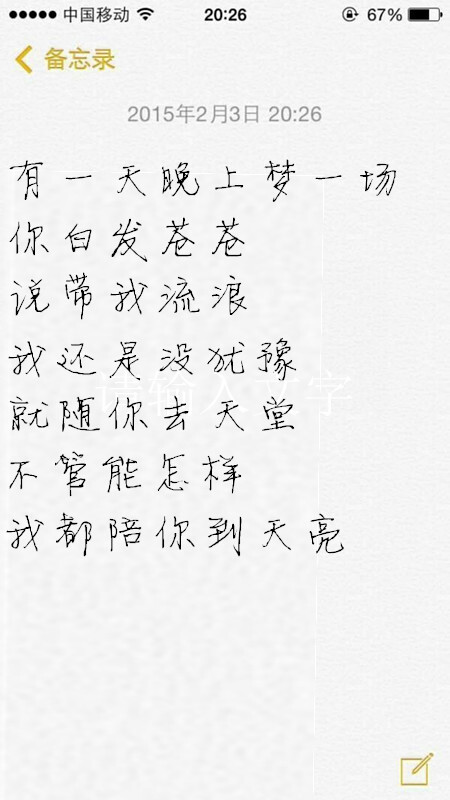 中国移动 20:26 67%
备忘录
2015年2月3日 20:26
有一天晚上梦一场
你白发苍苍
说带我流浪
我还是没犹豫
请输入文字
就随你去天堂
不管能怎样
我都陪你到天亮